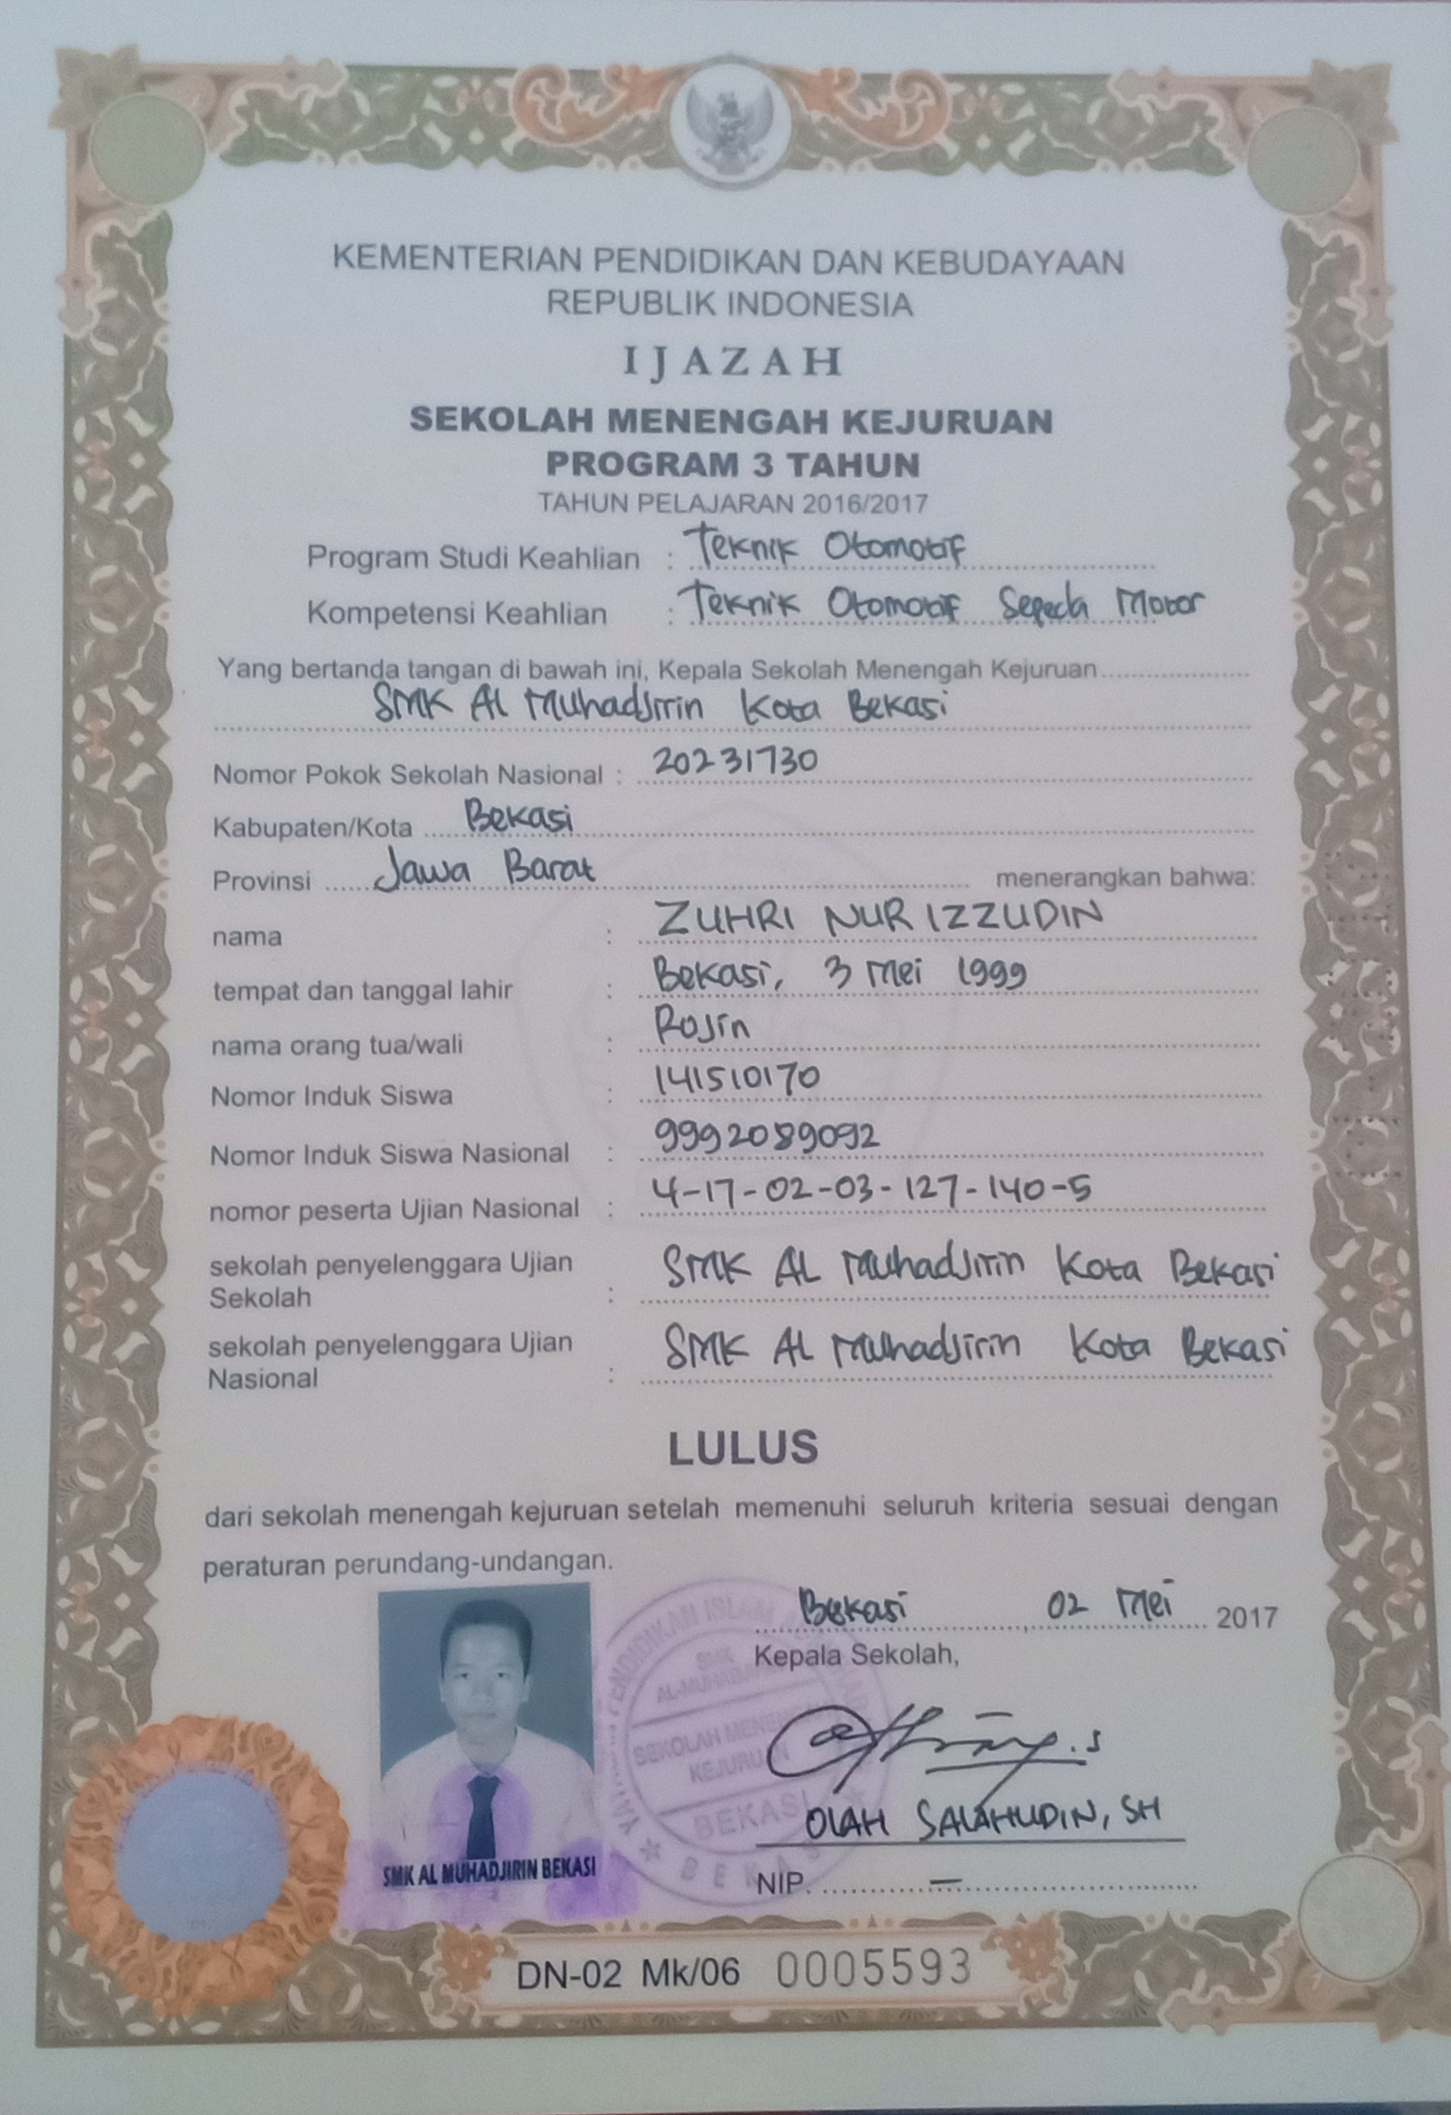 KEMENTERIAN PENDIDIKAN DAN KEBUDAYAAN
REPUBLIK INDONESIA
IJAZAH
SEKOLAH MENENGAH KEJURUAN
PROGRAM 3 TAHUN
TAHUN PELAJARAN 2016/2017
Program Studi Keahlian : Teknik Otomotif
Kompetensi Keahlian : Teknik Otomotif Sepeda Motor
Yang bertanda tangan di bawah ini, Kepala Sekolah Menengah Kejuruan
SMK Al Muhadjirin Kota Bekasi
Nomor Pokok Sekolah Nasional : 20231730
Kabupaten/Kota Bekasi
Provinsi Jawa Barat menerangkan bahwa:
nama : ZUHRI NUR IZZUDIN
tempat dan tanggal lahir : Bekasi, 3 Mei 1999
nama orang tua/wali : Rojin
Nomor Induk Siswa : 141510170
Nomor Induk Siswa Nasional : 9992089092
nomor peserta Ujian Nasional : 4-17-02-03-127-140-5
sekolah penyelenggara Ujian
Sekolah : SMK AL Muhadjirin Kota Bekasi
sekolah penyelenggara Ujian
Nasional : SMK AL Muhadjirin Kota Bekasi
LULUS
dari sekolah menengah kejuruan setelah memenuhi seluruh kriteria sesuai dengan
peraturan perundang-undangan.
Bekasi, 02 Mei 2017
Kepala Sekolah,
OLAH SALAHUDIN, SH
NIP. -
SMK AL MUHADJIRIN BEKASI
PENDIDIKAN ISLAM
SMK
SEKOLAH
BEKASI
DN-02 Mk/06 0005593